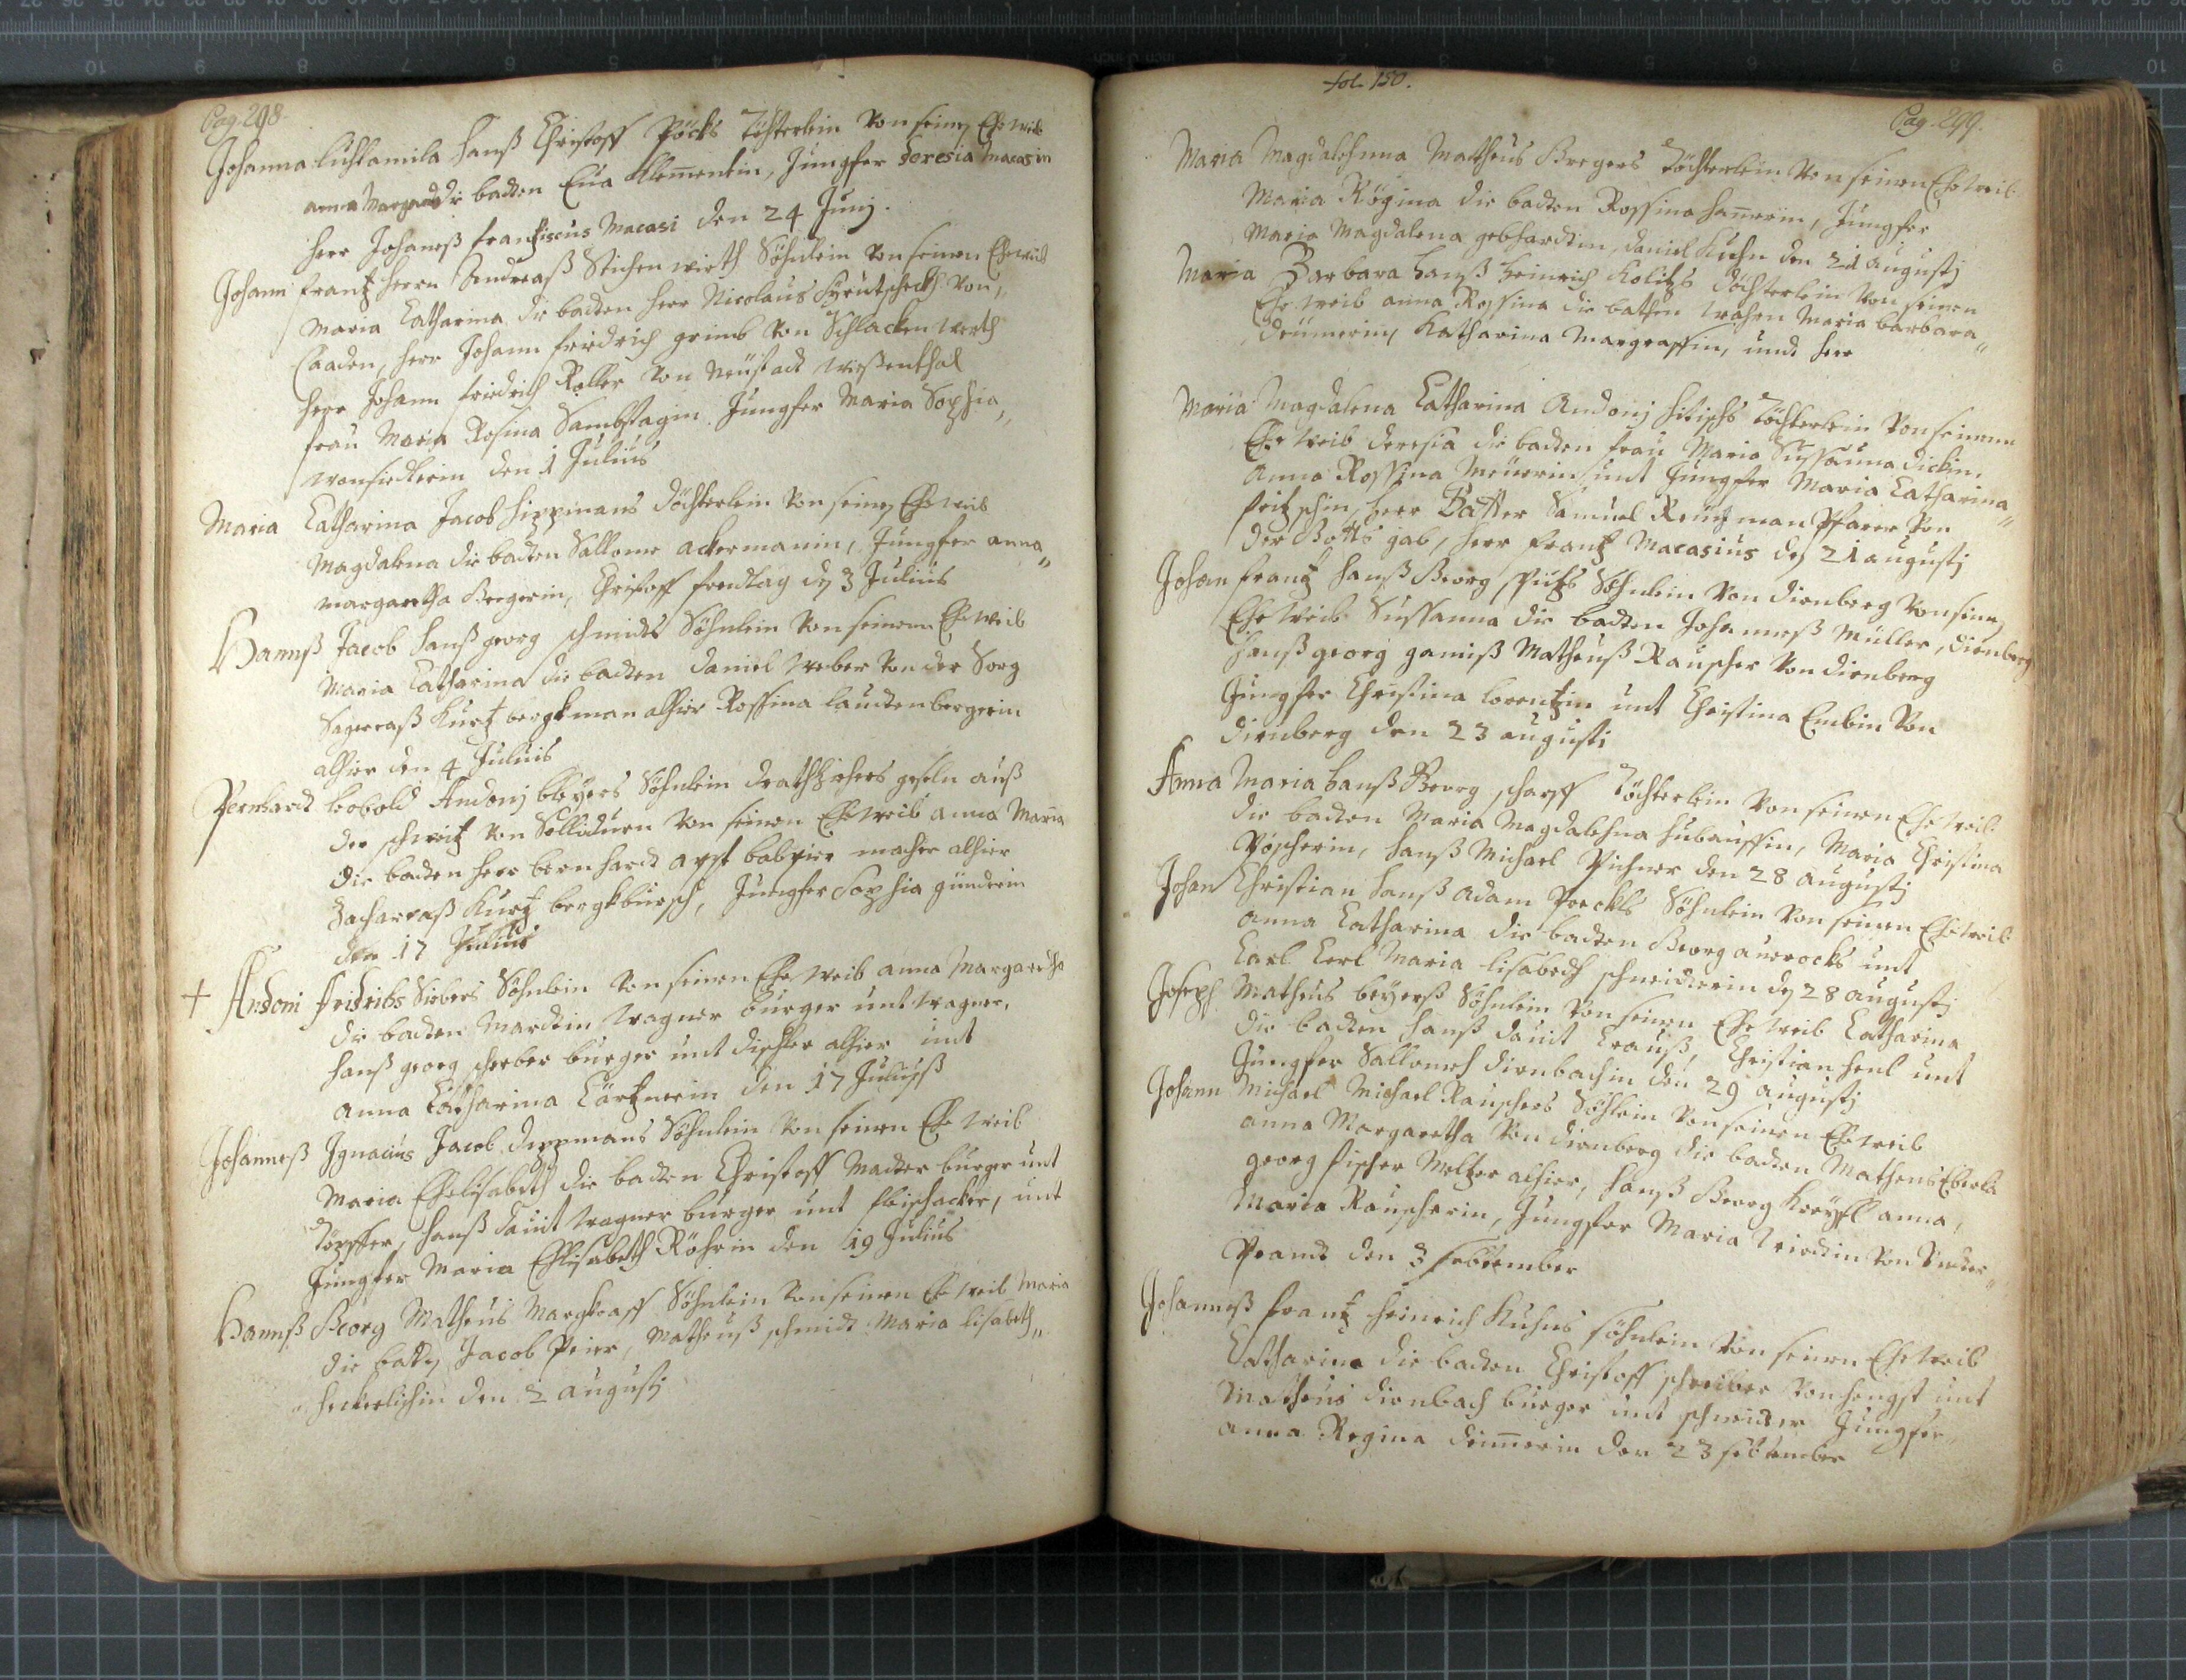 Pag. 298
Johanna Lithlamila Hanß Christoff Pöcks Töchterlein Von seinen Ehe Weib
anna Margaredt die badten Eua Klementin, Jungfer Teresia Macasin
Herr Johaneß Frantziscus Macasi den 24 Junj.
Johann Frantz Herrn Andreaß Stichenwirth Söhnlein Von seinen Ehe Weib
Maria Catharina die badten Herr Nicolaus Von
Caaden, Herr Johann Fridrich grimb Von Schlacken werth
Herr Johann Fridrich Roller Von Neüstadt Wiesenthal
Frau Maria Rosina Sambstagin, Jungfer Maria Sophia
wonsidlerin den 1 Julius
Maria Catharina Jacob Hippmans döchterlein Von seinen Ehe Weib
Magdalena die badten Sallome ackermanin, Jungfer anna
margaretha Bergerin, Christoff freudtag den 3 Julius
Hannß Jacob Hanß georg schmidts Söhnlein Von seinem Ehe Weib
Maria Catharina die badten Daniel Weber Von der Sorg
Kurtz bergkman alhier Rossina lauttenbergerin
alhier den 4 Julius
Bernhardt leobold Andonj bleyers Söhnlein drathziehers geseln auß
der schweitz Von Solliduren Von seinen Ehe Weib anna Maria
die badten Herr bernhardt apst babpier macher alhier
Zachareaß Kurtz bergkbürsch, Jungfer Sophia günderin
den 17 Julius
+ Andoni Fridrichs Siebers Söhnlein Von seinen Ehe Weib anna Margaredha
die badten Mardtin Wagner burger unt Wagner,
Hanß georg scherber burger unt dischler alhier unt
anna Catharina Cärtznerin den 17 Juliuß
Johanneß Ignacius Jacob Deppmans Söhnlein Von seinen Ehe Weib
Maria Ehelisabeth die badten Christoff Mader burger unt
döpffer, Hanß Dauit Wagner burger unt fleischacker, unt
Jungfer Maria Ehlisabeth Röhrin den 19 Julius
Hannß Georg Matheus Margkraff Söhnlein Von seinen Ehe Weib Maria
die badten Jacob Peier, Matheuß schmidt Maria lisabeth
Heckerlichin den 2 augustj
fol. 150.
Pag. 299.
Maria Magdalehnna Matheus Bregers Töchterlein Von seinen Ehe Weib
Maria Rögina die badten Rossina Hamerin, Jungfer
Maria Magdalena gebhardtin, daniel Kuhn den 21 augustj
Maria Barbara Hanß Heinrich Kolitzs döchterlein Von seinen
Ehe Weib anna Rossina die bathen Wahren Maria barbara
deümerin, Katharina Margraffin, und Herr
Maria Magdalena Catharina Andonj Hitschs Töchterlein Von seinem
Ehe Weib deresia die badten Frau Maria Sussanna dickin,
Anna Rossina Meüerin, unt Jungfer Maria Catharina
fritzschin, Herr Batter Samuel Reinzman Pfarer Von
der Gotts gab, Herr Frantz Macasius den 21 augustj
Johan Frantz Hanß Georg Söhnlein Von dirnberg Von seinen
Ehe Weib Sussanna die badten Johanneß Müller, dirnberg
Hanß georg gamiß Matheuß Rauscher Von dirnberg
Jungfer Christina lorentzin unt Christina Emlin Von
dirnberg den 23 augustj
Anna Maria Hanß Georg scharff Töchterlein Von seinen Ehe Weib
die badten Maria Magdalehna Hubauffin, Maria Christina
Pöscherin, Hanß Michael Pichner den 28 augustj
Johan Christian Hanß Adam Perckls Söhnlein Von seinen Ehe Weib
anna Catharina die badten Georg aurrocks unt
Carl Carl Maria lisabedh schneiderin den 28 augustj
Joseph Matheus beyerß Söhnlein Von seinen Ehe Weib Catharina
die badten Hanß dauit Krauß, Christian Henl unt
Jungfer Sallomeh dirnbachin den 29 augustj
Johann Michael Michael Rauschers Söhlein Von seinen Ehe Weib
anna Margaretha Von dirnberg die badten Matheus Eberla
georg fischer Meltzer alhier, Hanß Georg Kreyssl anna,
Maria Rauscherin, Jungfer Maria Von
Prandt den 3 September
Johanneß Frantz Heinrich Kuhns söhnlein Von seinen Ehe Weib
Catharina die badten Christoff schreiber Von Hengst unt
Matheus dirnbach burger unt schneider Jungfer
anna Regina deimerin den 23 september